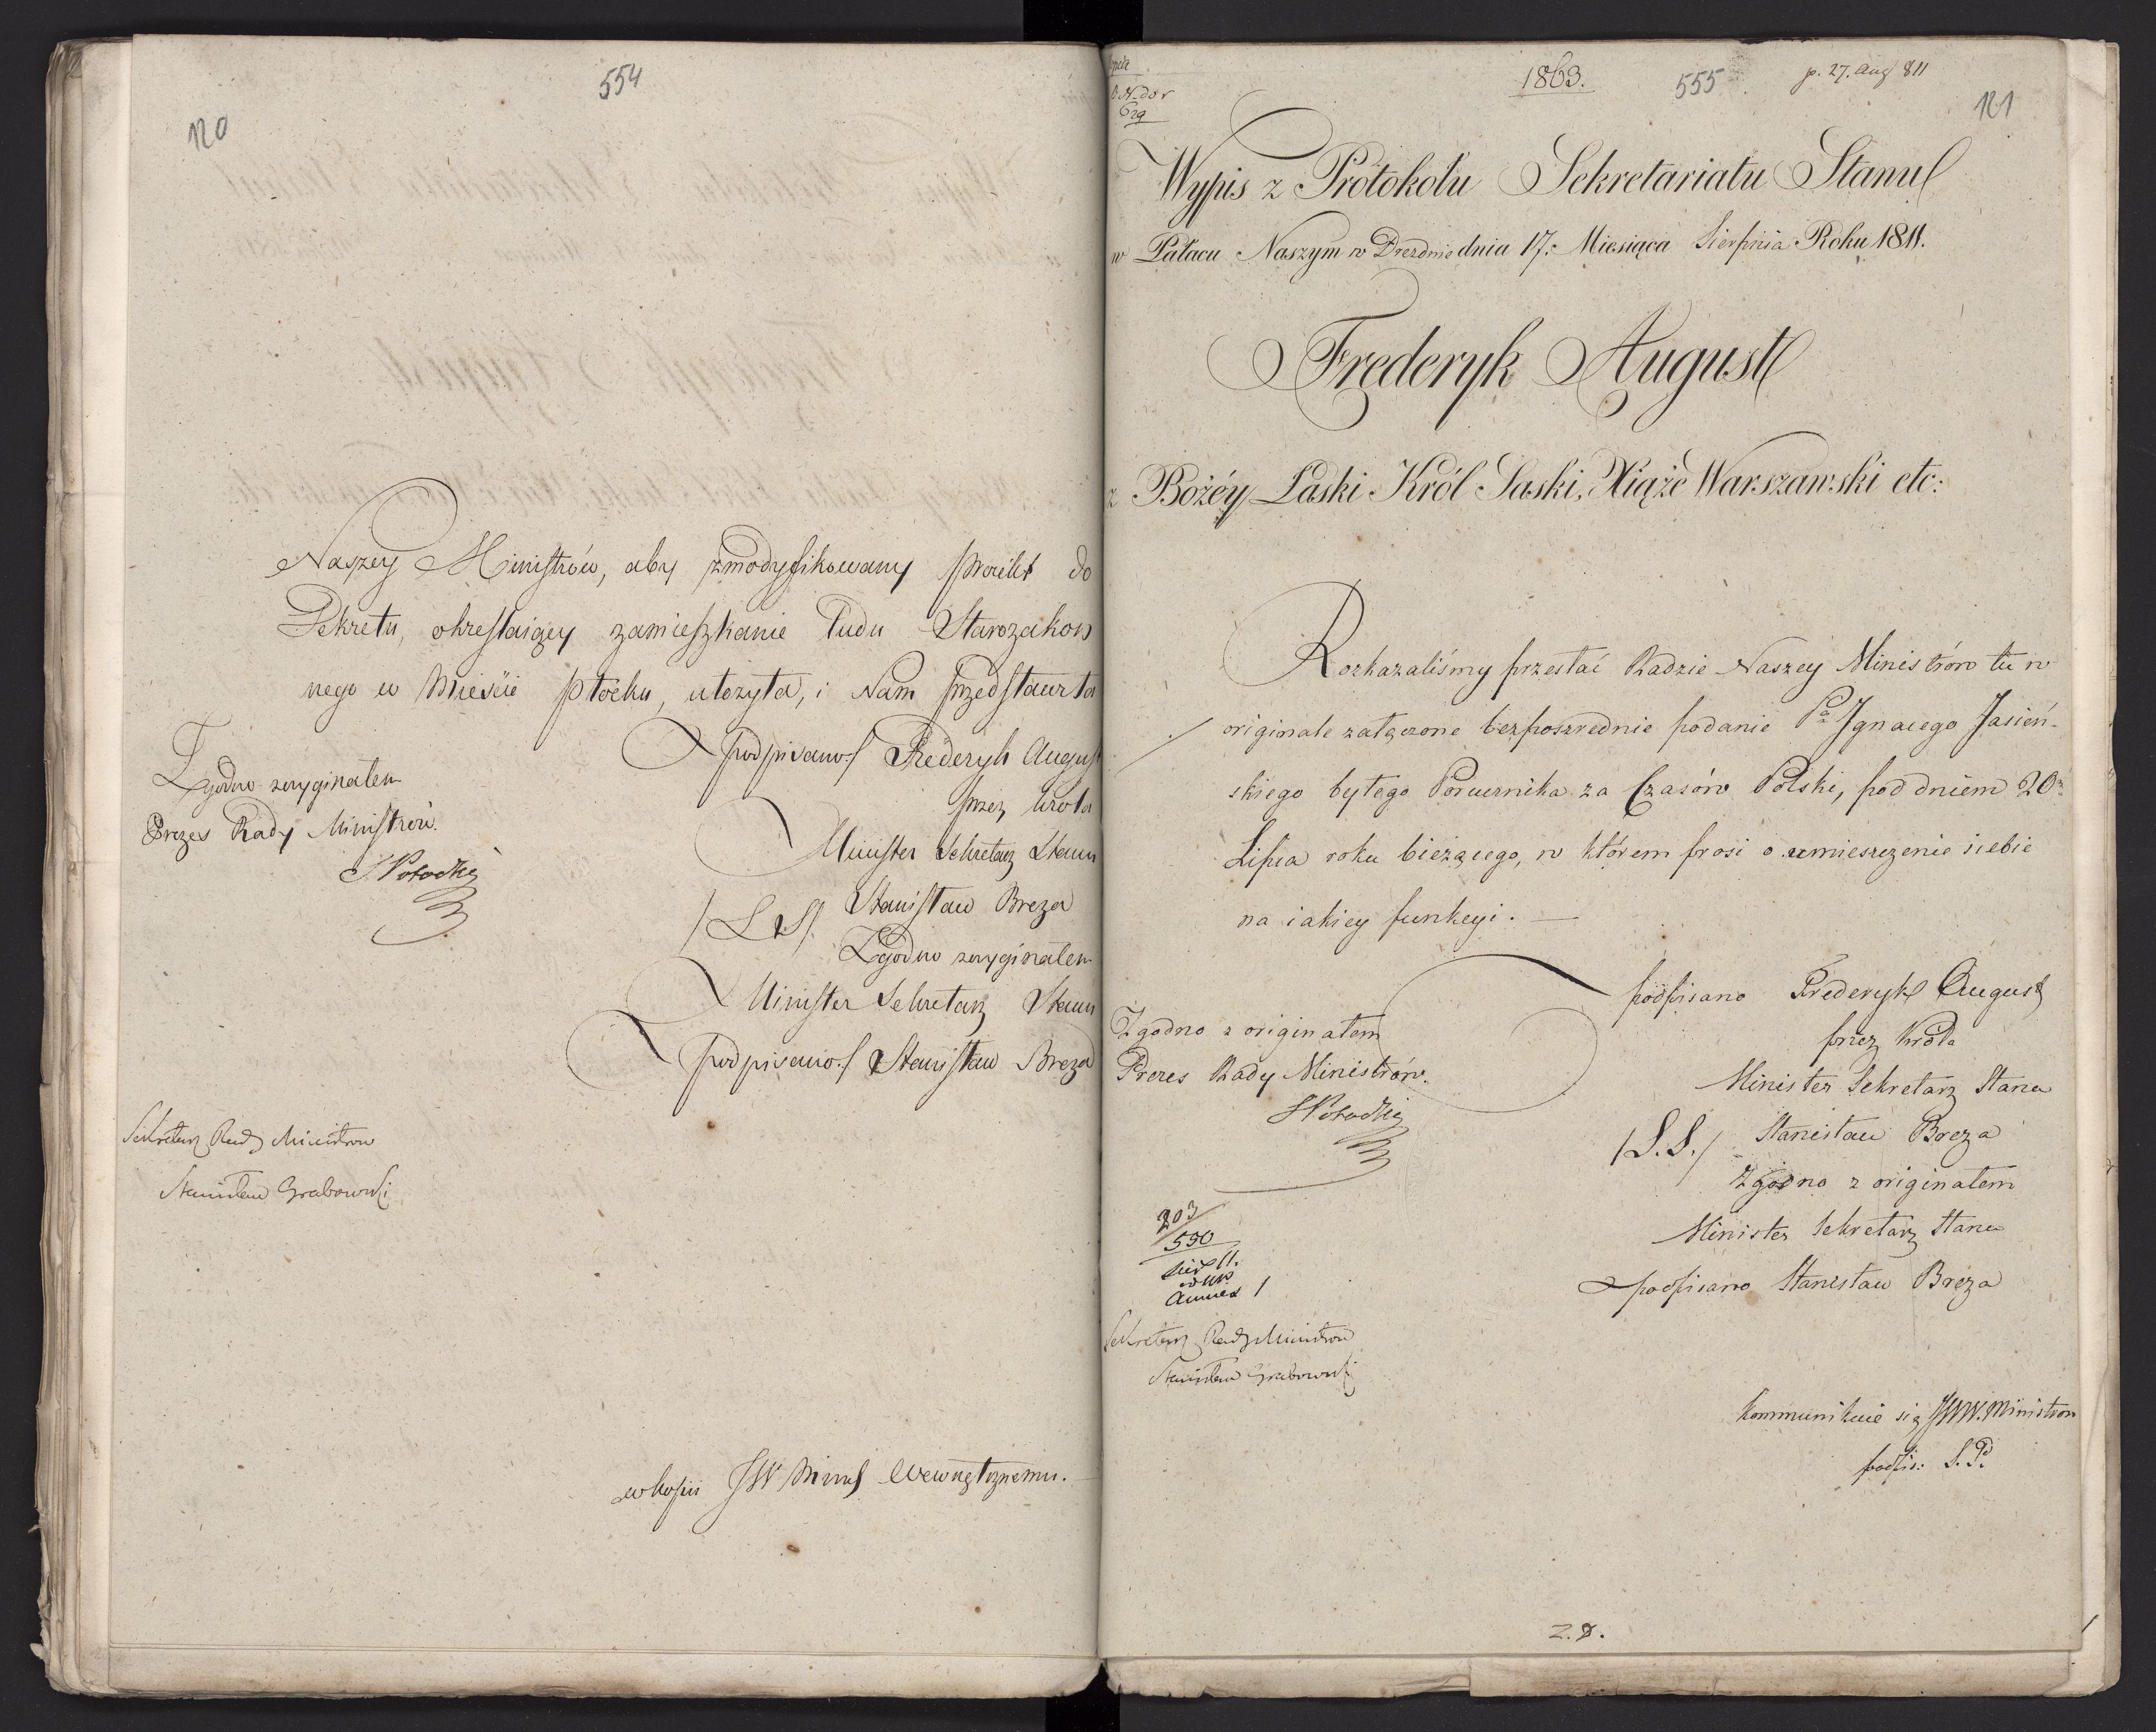 554
120
Naszey Ministrów, aby zmodyfikowany proiekt do
Dekretu, okreslaiący zamieszkanie Ludu Starozakon
nego w Mieście Płocku, ułożyła, i Nam przedstawiła
podpisano/ Frederyk August
przez Króla
Minister Sekretarz Stanu
/L.S/. Stanisław Breza
Zgodno zoryginałem
Minister Sekretarz Stanu
podpisano/ Stanisław Breza
Zgodno zoryginałem
Prezes Rady Ministrów.
S Potocki
Sekretarz Rady Ministrow
Stanisław Grabowski
w kopii JW Minrs Wewnętrznemu.
1863.
555
p. 27. Aug 811
121
Wypis z Protokołu Sekretariatu Stanu
w Pałacu Naszym w Dreznie dnia 17. Miesiąca Sierpnia Roku 1811.
Frederyk August
z Bożéy Łaski Król Saski, Xiąże Warszawski etc:
Rozkazaliśmy przesłać Radzie Naszey Ministrów tu w
originale załączone bezposzrednie podanie Pa Ignacego Jasień-
skiego byłego Porucznika za Czasów Polski, pod dniem 20m
Lipca roku bieżącego, w którem prosi o umieszczenie siebie
na iakiey funkcyi. —
podpisano Frederyk August
przez Króla
Minister Sekretarz Stanu
/L.S./ Stanisław Breza
Zgodno z originałem
Minister Sekretarz Stanu
podpisano Stanisław Breza
Zgodno z originałem
Prezes Rady Ministrów.
S Potocki
203
590
Annex 1
Sekretarz Rady Ministrow
Stanisław Grabowski
Kommunikuie się JWW. Ministrom
podpis: S. P.